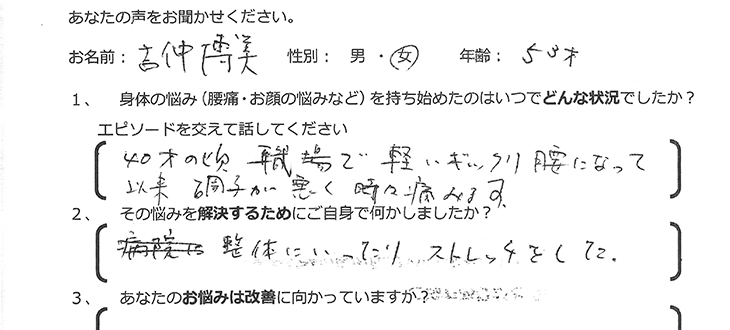 あなたの声をお聞かせください。
お名前： 吉仲博美 性別： 男 ・ 女 年齢： 53才
１、 身体の悩み（腰痛・お顔の悩みなど）を持ち始めたのはいつでどんな状況でしたか？
エピソードを交えて話してください
40才の頃 職場で軽いギックリ腰になって
以来 調子が悪く 時々痛みます
２、 その悩みを解決するためにご自身で何かしましたか？
病院に 整体にいったり ストレッチをした.
３、 あなたのお悩みは改善に向かっていますか？